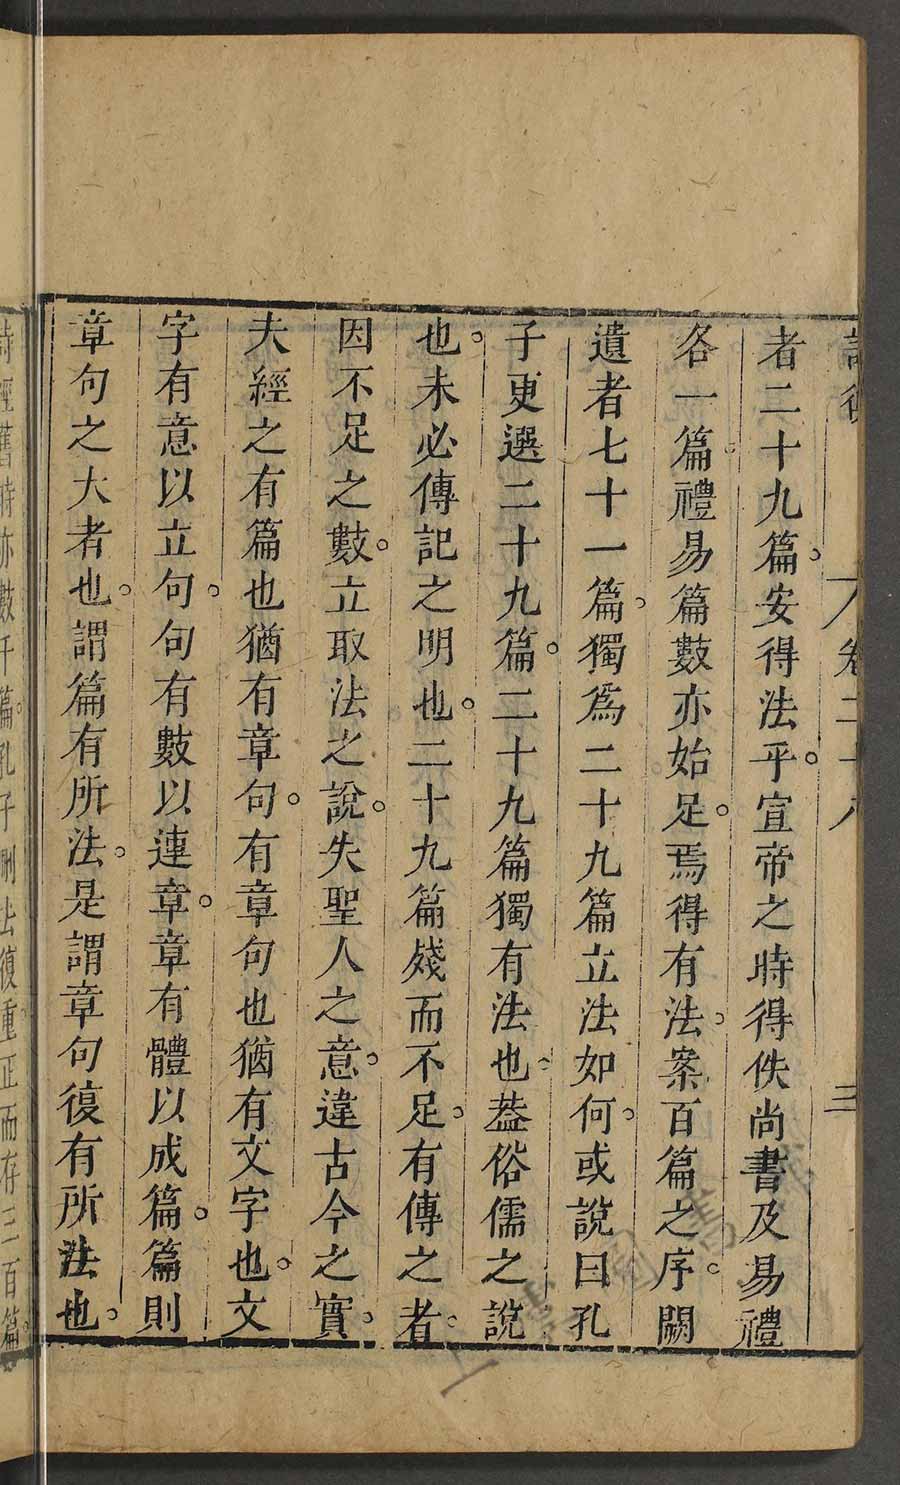 論衡 卷二十八 三
者二十九篇。安得法乎。宣帝之時得佚尚書及易禮
各一篇。禮易篇數亦始足。焉得有法。案百篇之序。闕
遺者七十一篇。獨爲二十九篇立法如何。或說曰孔
子更選二十九篇。二十九篇獨有法也。葢俗儒之說
也。未必傳記之明也。二十九篇殘而不足。有傳之者。
因不足之數。立取法之說。失聖人之意。違古今之實。
夫經之有篇也猶有章句。有章句也猶有文字也。文
字有意以立句。句有數以連章。章有體以成篇。篇則
章句之大者也。謂篇有所法。是謂章句復有所法也。
詩經舊時亦數千篇。孔子刪去復重正而存三百篇。